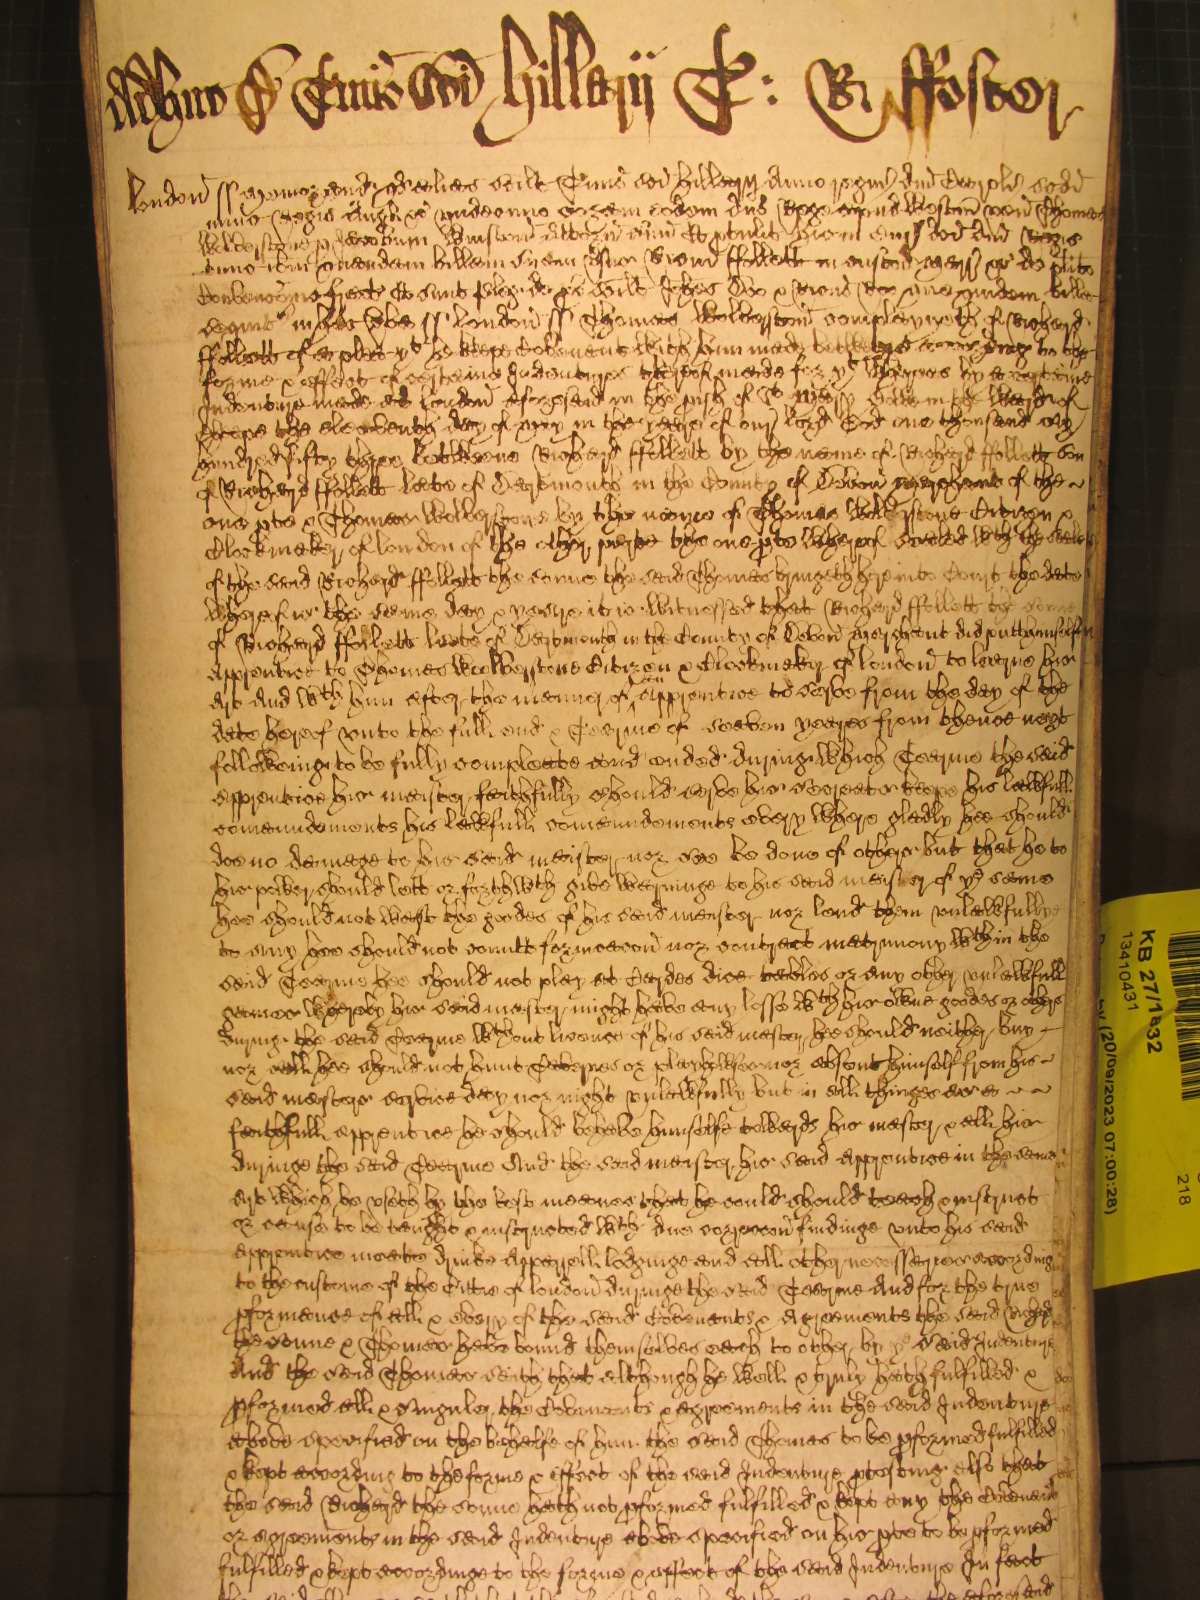 Adhuc de Termino Sci Hillarij T: R: ffoster
London ss Memorand qd alias scilt Termino Sci Hillary Anno regni dni Caroli scdi
nunc Regis Angl &c undecimo coram eodem dno Rege apud Westm ven Thomas
Wolverstone p Attorn suum Et ptulit hic in Cur dci dni Regis
tunc ibm quandam billam suam vsus Ricum ffollett in custod marr &c de plito
Convencionis fracte Et sunt pleg de ps scilt Johes Doe & Ricus Roe que quidem billa
sequit in hec vba ss London ss Thomas Wolverston complayneth of Richard
ffollett of a plea yt he keepe Covenant with him made betweene accordinge to the
forme & effect of certeine Indentures thereof made for yt Whereas by a certeine
Indenture made at London aforesaid in the psh of St Mary in the Ward of
Cheape the eleaventh day of may in the yeare of our Lord God one thousand six
hundred fifty three betweene Richard ffollett by the name of Richard ffollett son
of Richard ffollett late of Dearmonth in the County of Devon merchant of the
one pte & Thomas Wolverstone by the name of Thomas Wolverstone Citizen &
Clockmaker of London of the other parte the one pte whereof sealed wth the seale
of the said Richard ffollett the sonne the said Thomas bringeth here into Court the date
whereof is the same day & yeare it is Witnessed that Richard ffollett the sonne
of Richard ffollett late of Dearmonth in the County of Devon merchant did putt himself
Apprentice to Thomas Wolverstone Citizen & Clockmaker of London to learne his
Art And wth him after the manner of an Apprentice to serve from the day of the
date hereof unto the full end & Tearme of seaven yeares from thence next
followeing to be fully compleate and ended duringe which Tearme the said
apprentice his master faithfully should serve his secrets keepe his lawfull
comaundements his lawfull comaundements every where gladly hee should
doe no damage to his said master nor see to be done of other but that he to
his power should lett or forthwth give warninge to his said master of ye same
hee should not wast the goodes of his said master nor lend them unlawfully
to any hee should not comitt fornicacon nor contract matrimony wthin the
said Tearme hee should not play at Cardes dice tables or any other unlawfull
games whereby his said master might have any losse wth his owne goodes or others
during the said Tearme wthout licence of his said master hee should neither buy
nor sell hee should not hunt Taverns or playhouses nor absent himself from his
said masters service day nor night unlawfully but in all thinges as a
faithfull apprentice he should behave himselfe towards his master & all his
duringe the said Tearme And the said master his said Apprentice in the same
Art which he useth by the best meanes that he could should teach & instruct
or cause to be taught & instructed wth due correccon findinge unto his said
apprentice meate drinke Apparell lodginge and all other necessaries accordinge
to the custome of the Cittie of London duringe the said Tearme And for the true
pformance of all & every of the said Covenants & Agreements the said Richard
the sonne & Thomas have bound themselves each to other by ye said Indenture
And the said Thomas saith that although he well & truly hath fulfilled &
pformed all & singuler the Covenants & agreements in the said Indenture
above specified on the behalfe of him the said Thomas to be pformed fulfilled
& kept according to the forme & effect of the said Indenture ptesting also that
the said Richard the sonne hath not pformed fulfilled & kept any the Covenants
or agreements in the said Indenture above specified on his pte to be pformed
fulfilled & kept accordinge to the forme & effect of the said Indenture In fact
KB 27/1832
13410431
(20/09/2023 07:00:28)
218